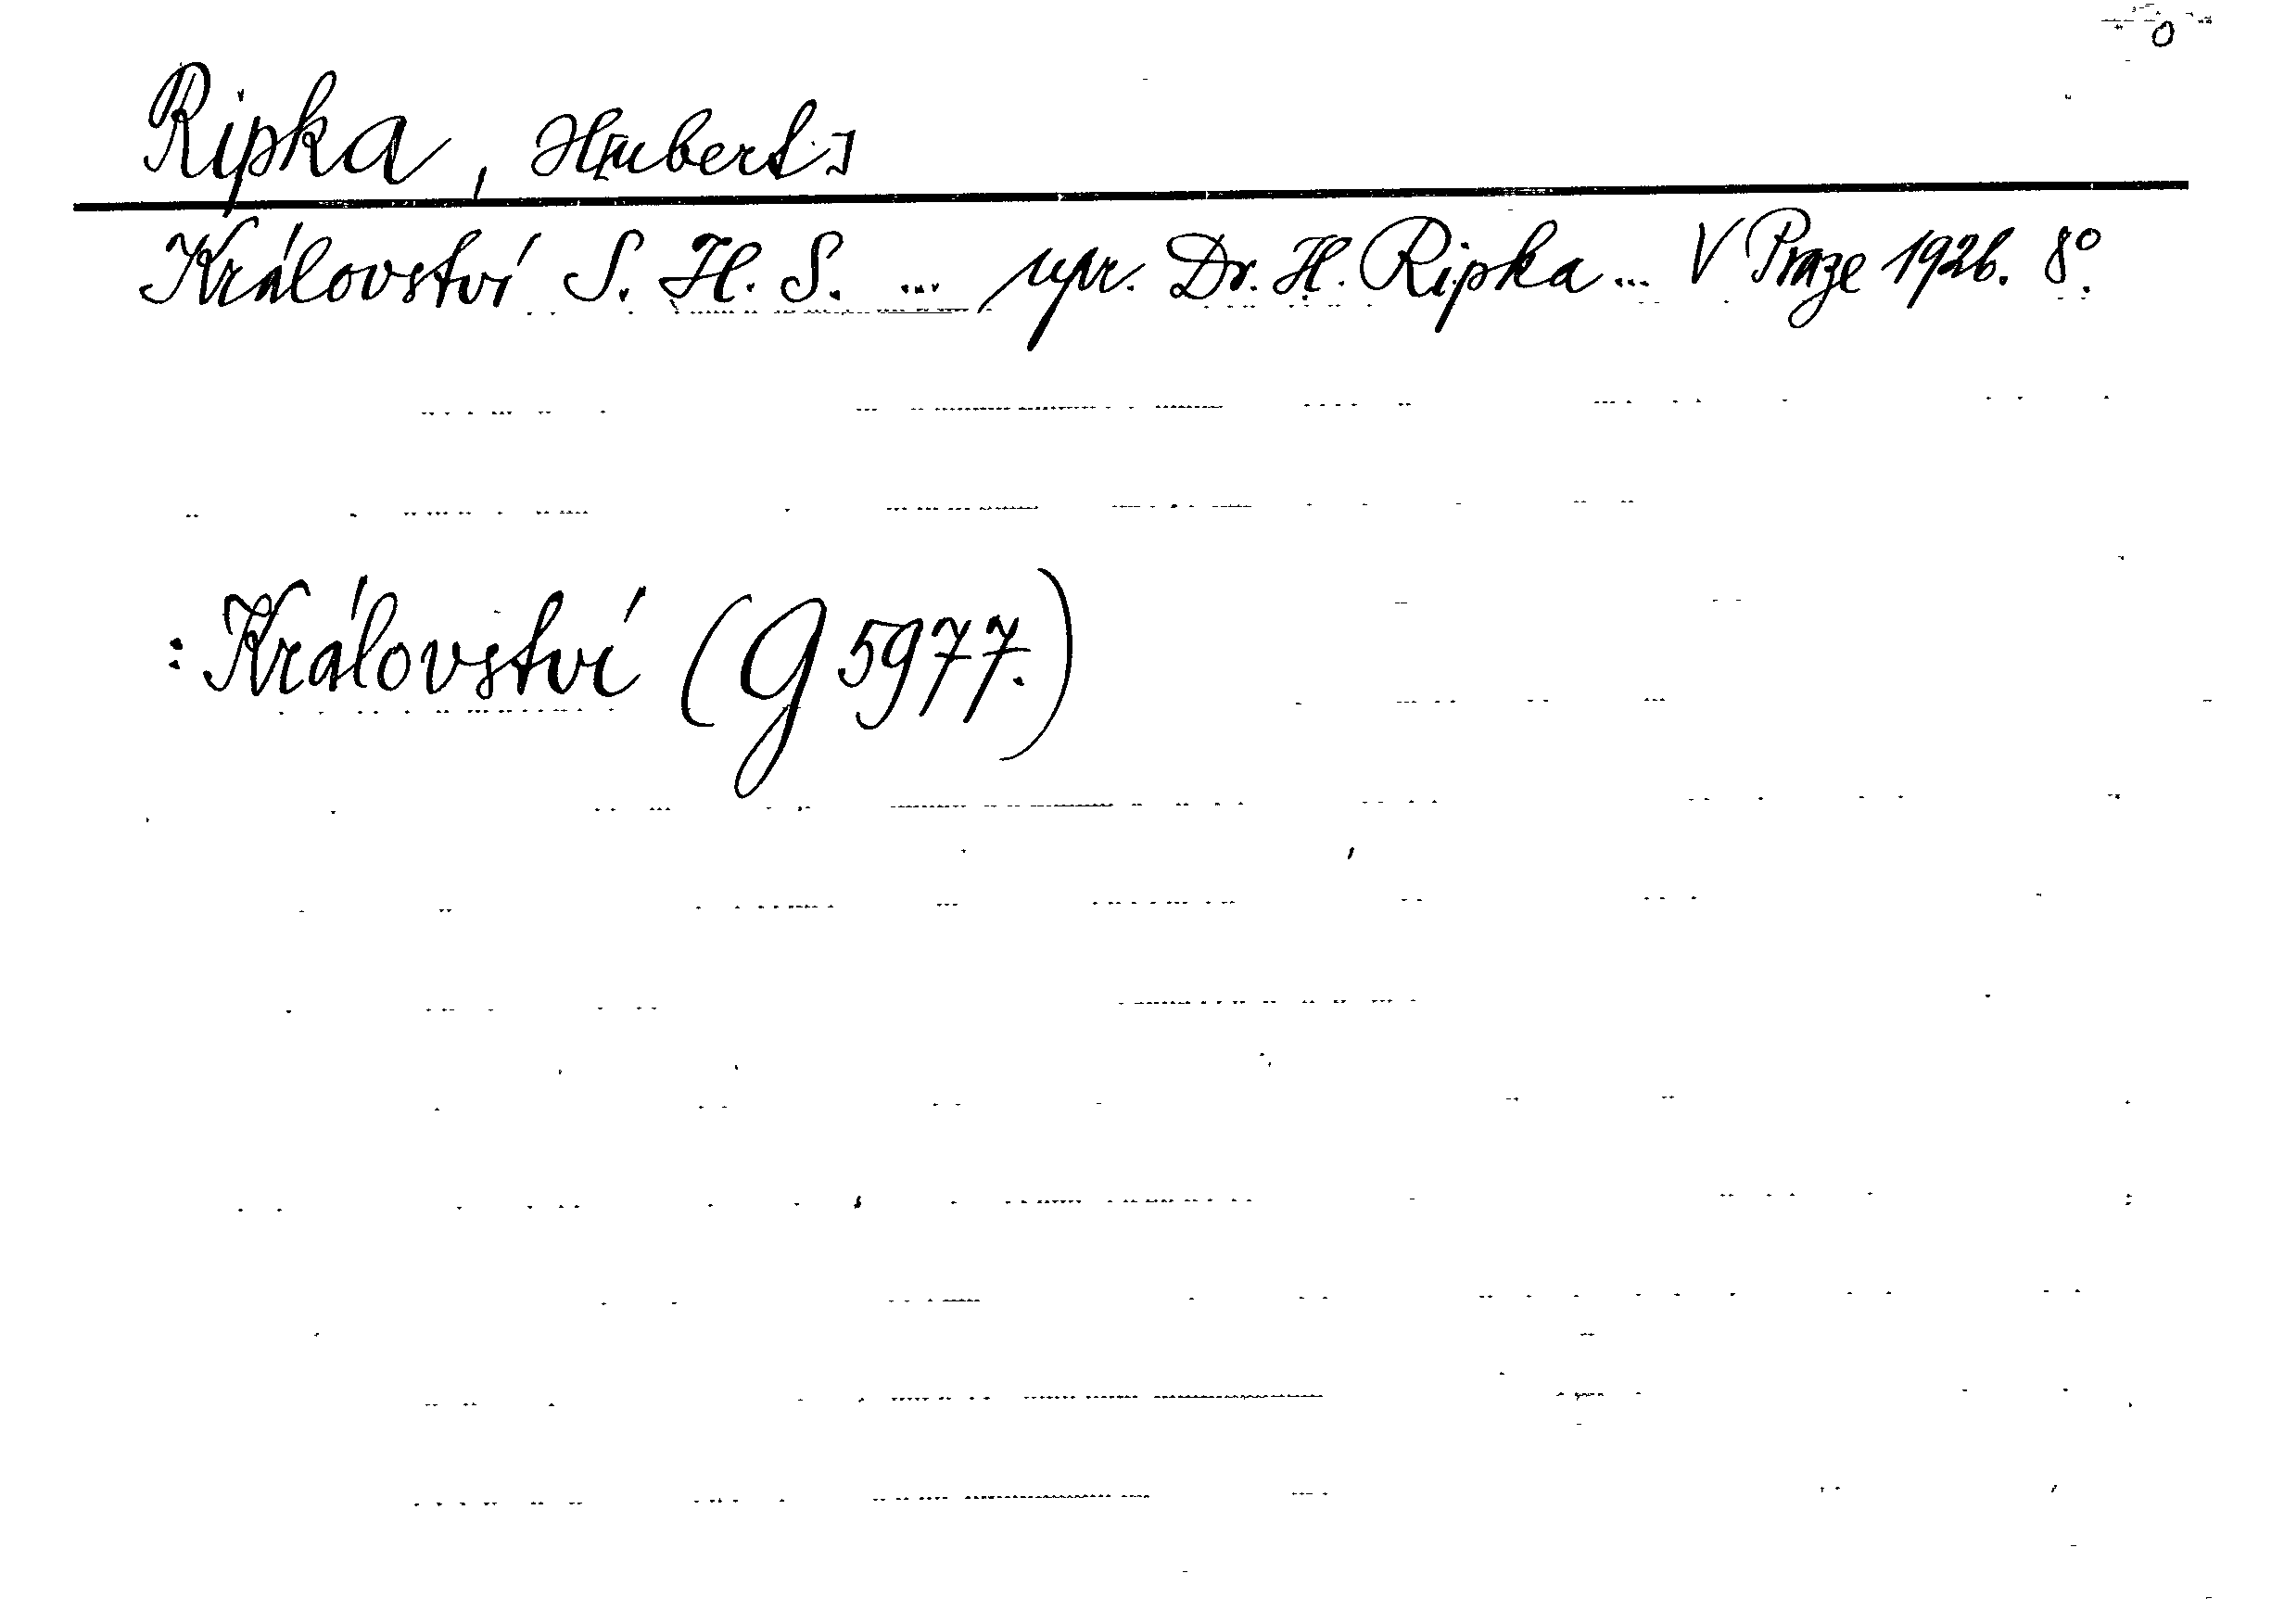 Ripka, H[ubert.]
Království S. H. S. ... upr. Dr. H. Ripka ... V Praze 1926. 8°.
: Království (G 5977.)